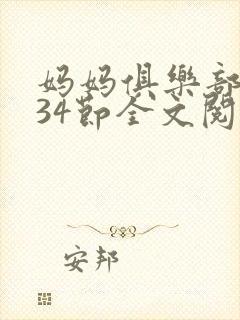 妈妈俱樂部
34節全文閱
安邦